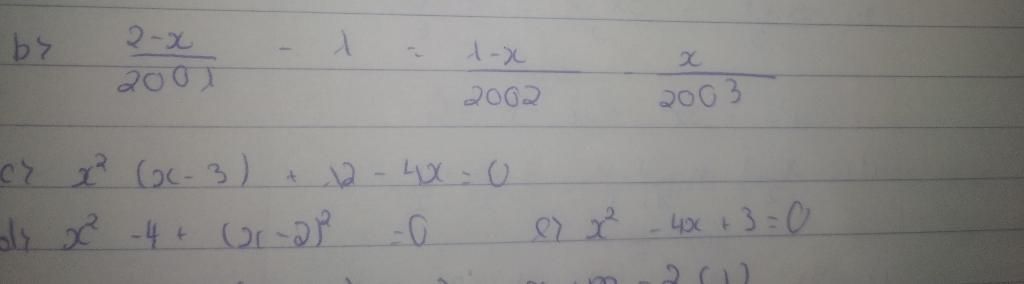 b> (2-x)/2001 - 1 = (1-x)/2002 - x/2003
c> x² (x-3) + 12 - 4x = 0
d> x² - 4 + (x-2)² = 0 e> x² - 4x + 3 = 0